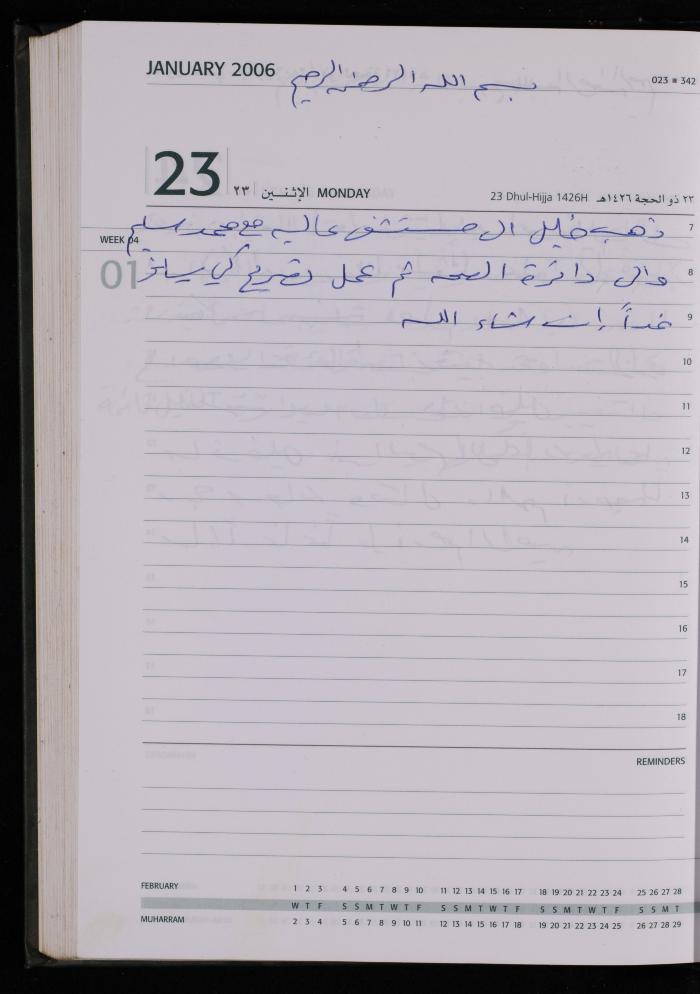 JANUARY 2006
بسم الله الرحمن الرحيم
023 ■ 342
23
٢٣ الإثنـين MONDAY
23 Dhul-Hijja 1426H ٢٣ ذو الحجة ١٤٢٦هـ
7
ذهب خليل الى مستشفى عاليه مع محمد سليم
WEEK 04
8
والى دائرة الصحه ثم عمل تصريح كي يسافر
01
9
غداً إن شاء الله
10
11
12
13
14
15
16
17
18
REMINDERS
FEBRUARY 1 2 3 4 5 6 7 8 9 10 11 12 13 14 15 16 17 18 19 20 21 22 23 24 25 26 27 28
W T F S S M T W T F S S M T W T F S S M T W T F S S M T
MUHARRAM 2 3 4 5 6 7 8 9 10 11 12 13 14 15 16 17 18 19 20 21 22 23 24 25 26 27 28 29